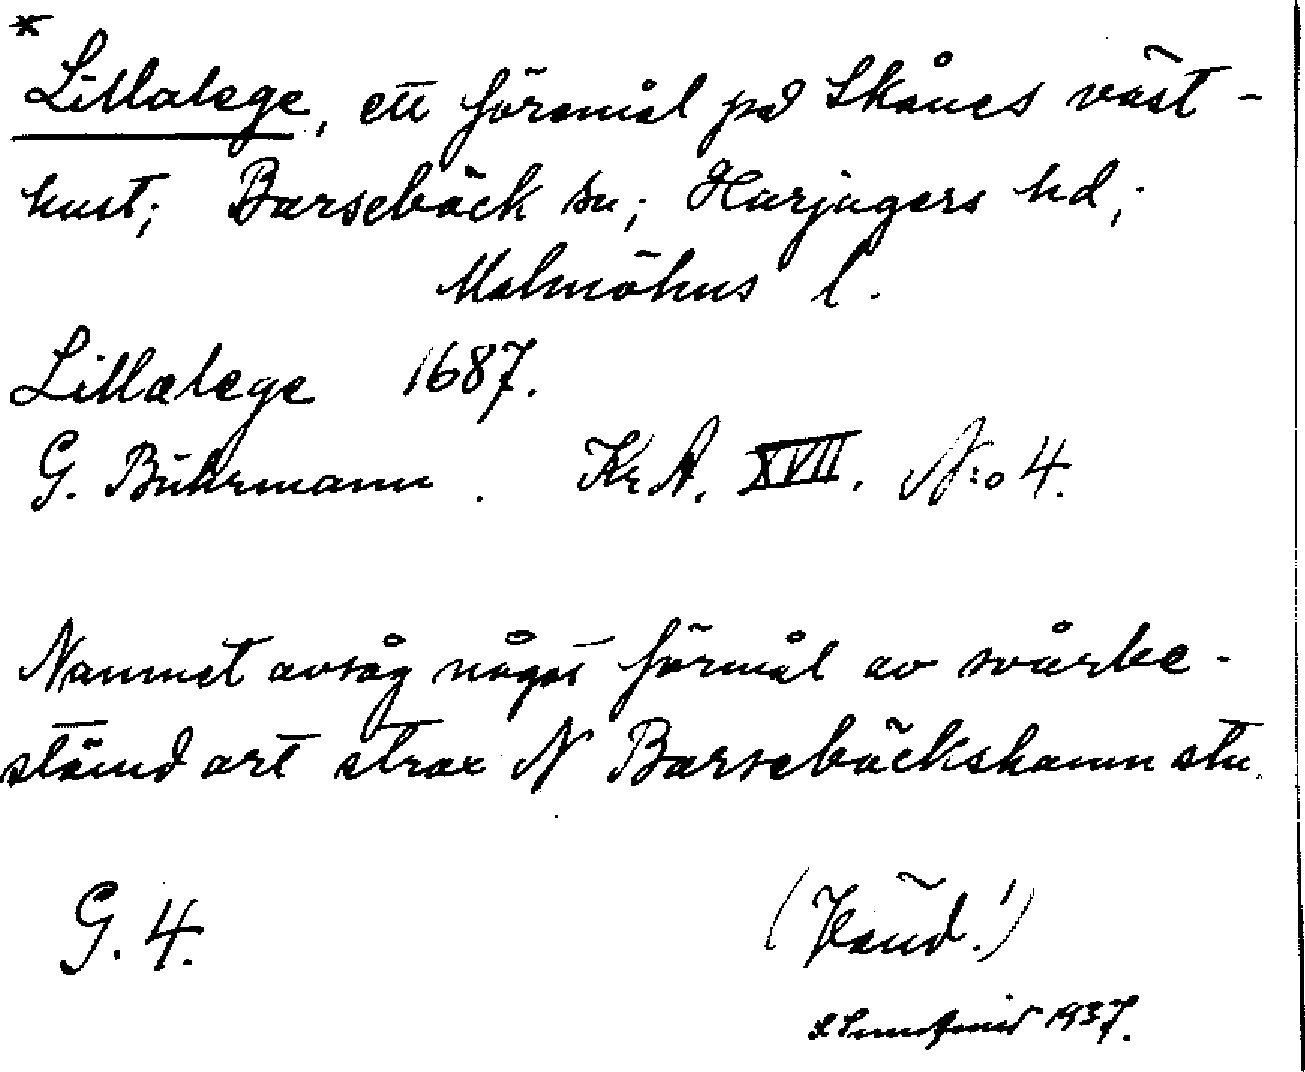 *
Lillalege, ett föremål på Skånes väst-
kust; Barsebäck sn; Harjagers hd;
Malmöhus l.
Lillalege 1687.
G. Buhrmann. Kr A. XVII. N:o 4.
Namnet avsåg något föremål av svårbe-
stämd art strax N Barsebäckshamn stn.
G. 4.
1937.